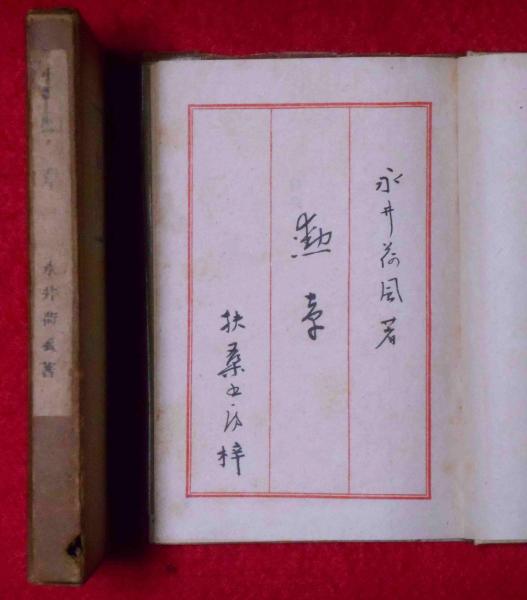 永井荷風著
勲章
扶桑書房梓
章
永井荷風著